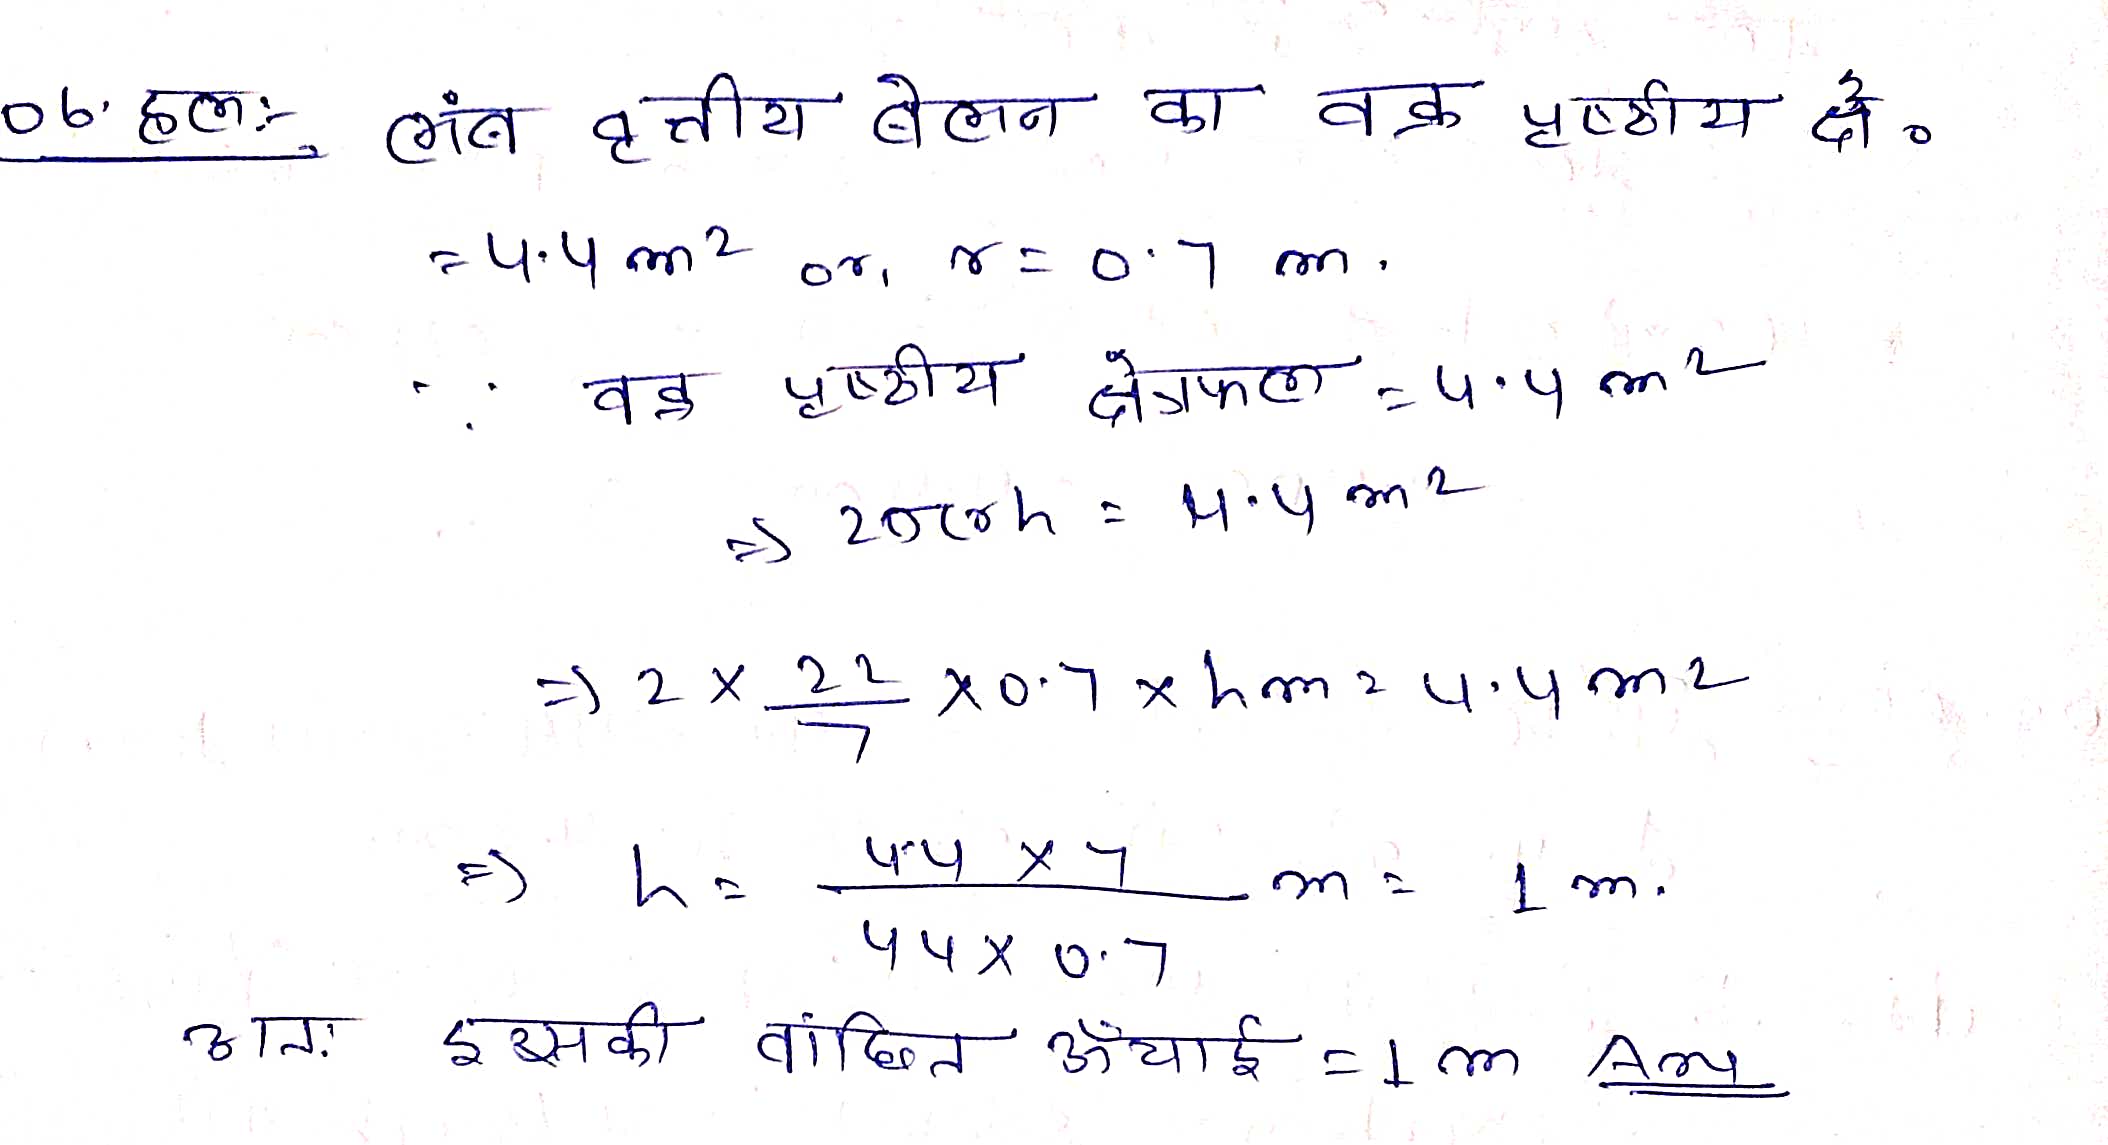 06. हल:- लंब वृत्तीय बेलन का वक्र पृष्ठीय क्षे०
= 4.4 m² or, r = 0.7 m.
∵ वक्र पृष्ठीय क्षेत्रफल = 4.4 m²
=> 2πrh = 4.4 m²
=> 2 × 22/7 × 0.7 × h m = 4.4 m²
=> h = 4.4 × 7 / 44 × 0.7 m = 1 m.
अत: इसकी वांछित ऊँचाई = 1 m Ans